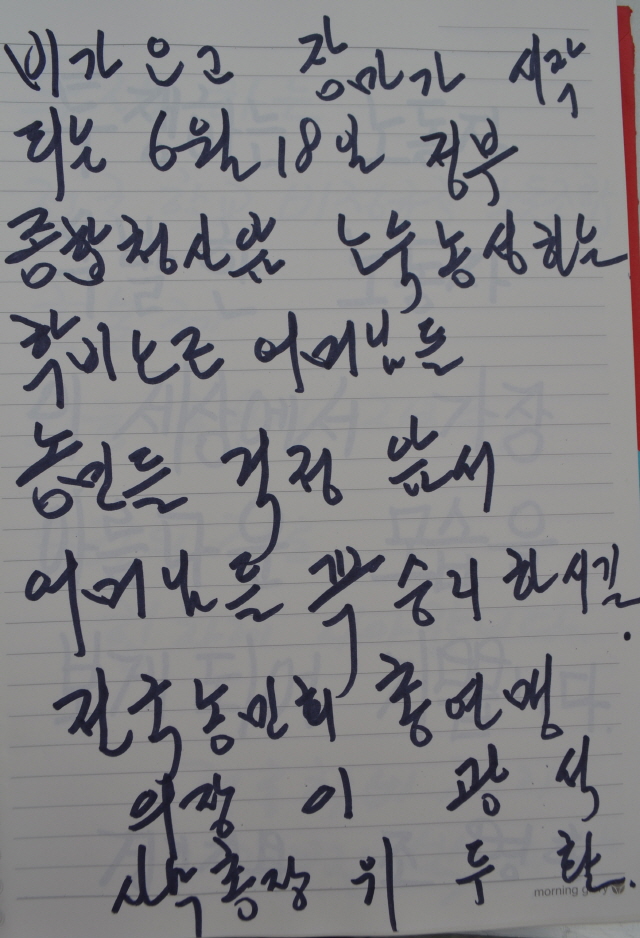 비가 온고 장마가 시작
되는 6월 18일 정부
종합청사앞 노숙농성하는
학비노조 어머님들
농민들 걱정 앞서
어머님들 꼭 승리 하시길.
전국농민회 총연맹
의장 이 광석
사무총장 위 두 환.
morning glory